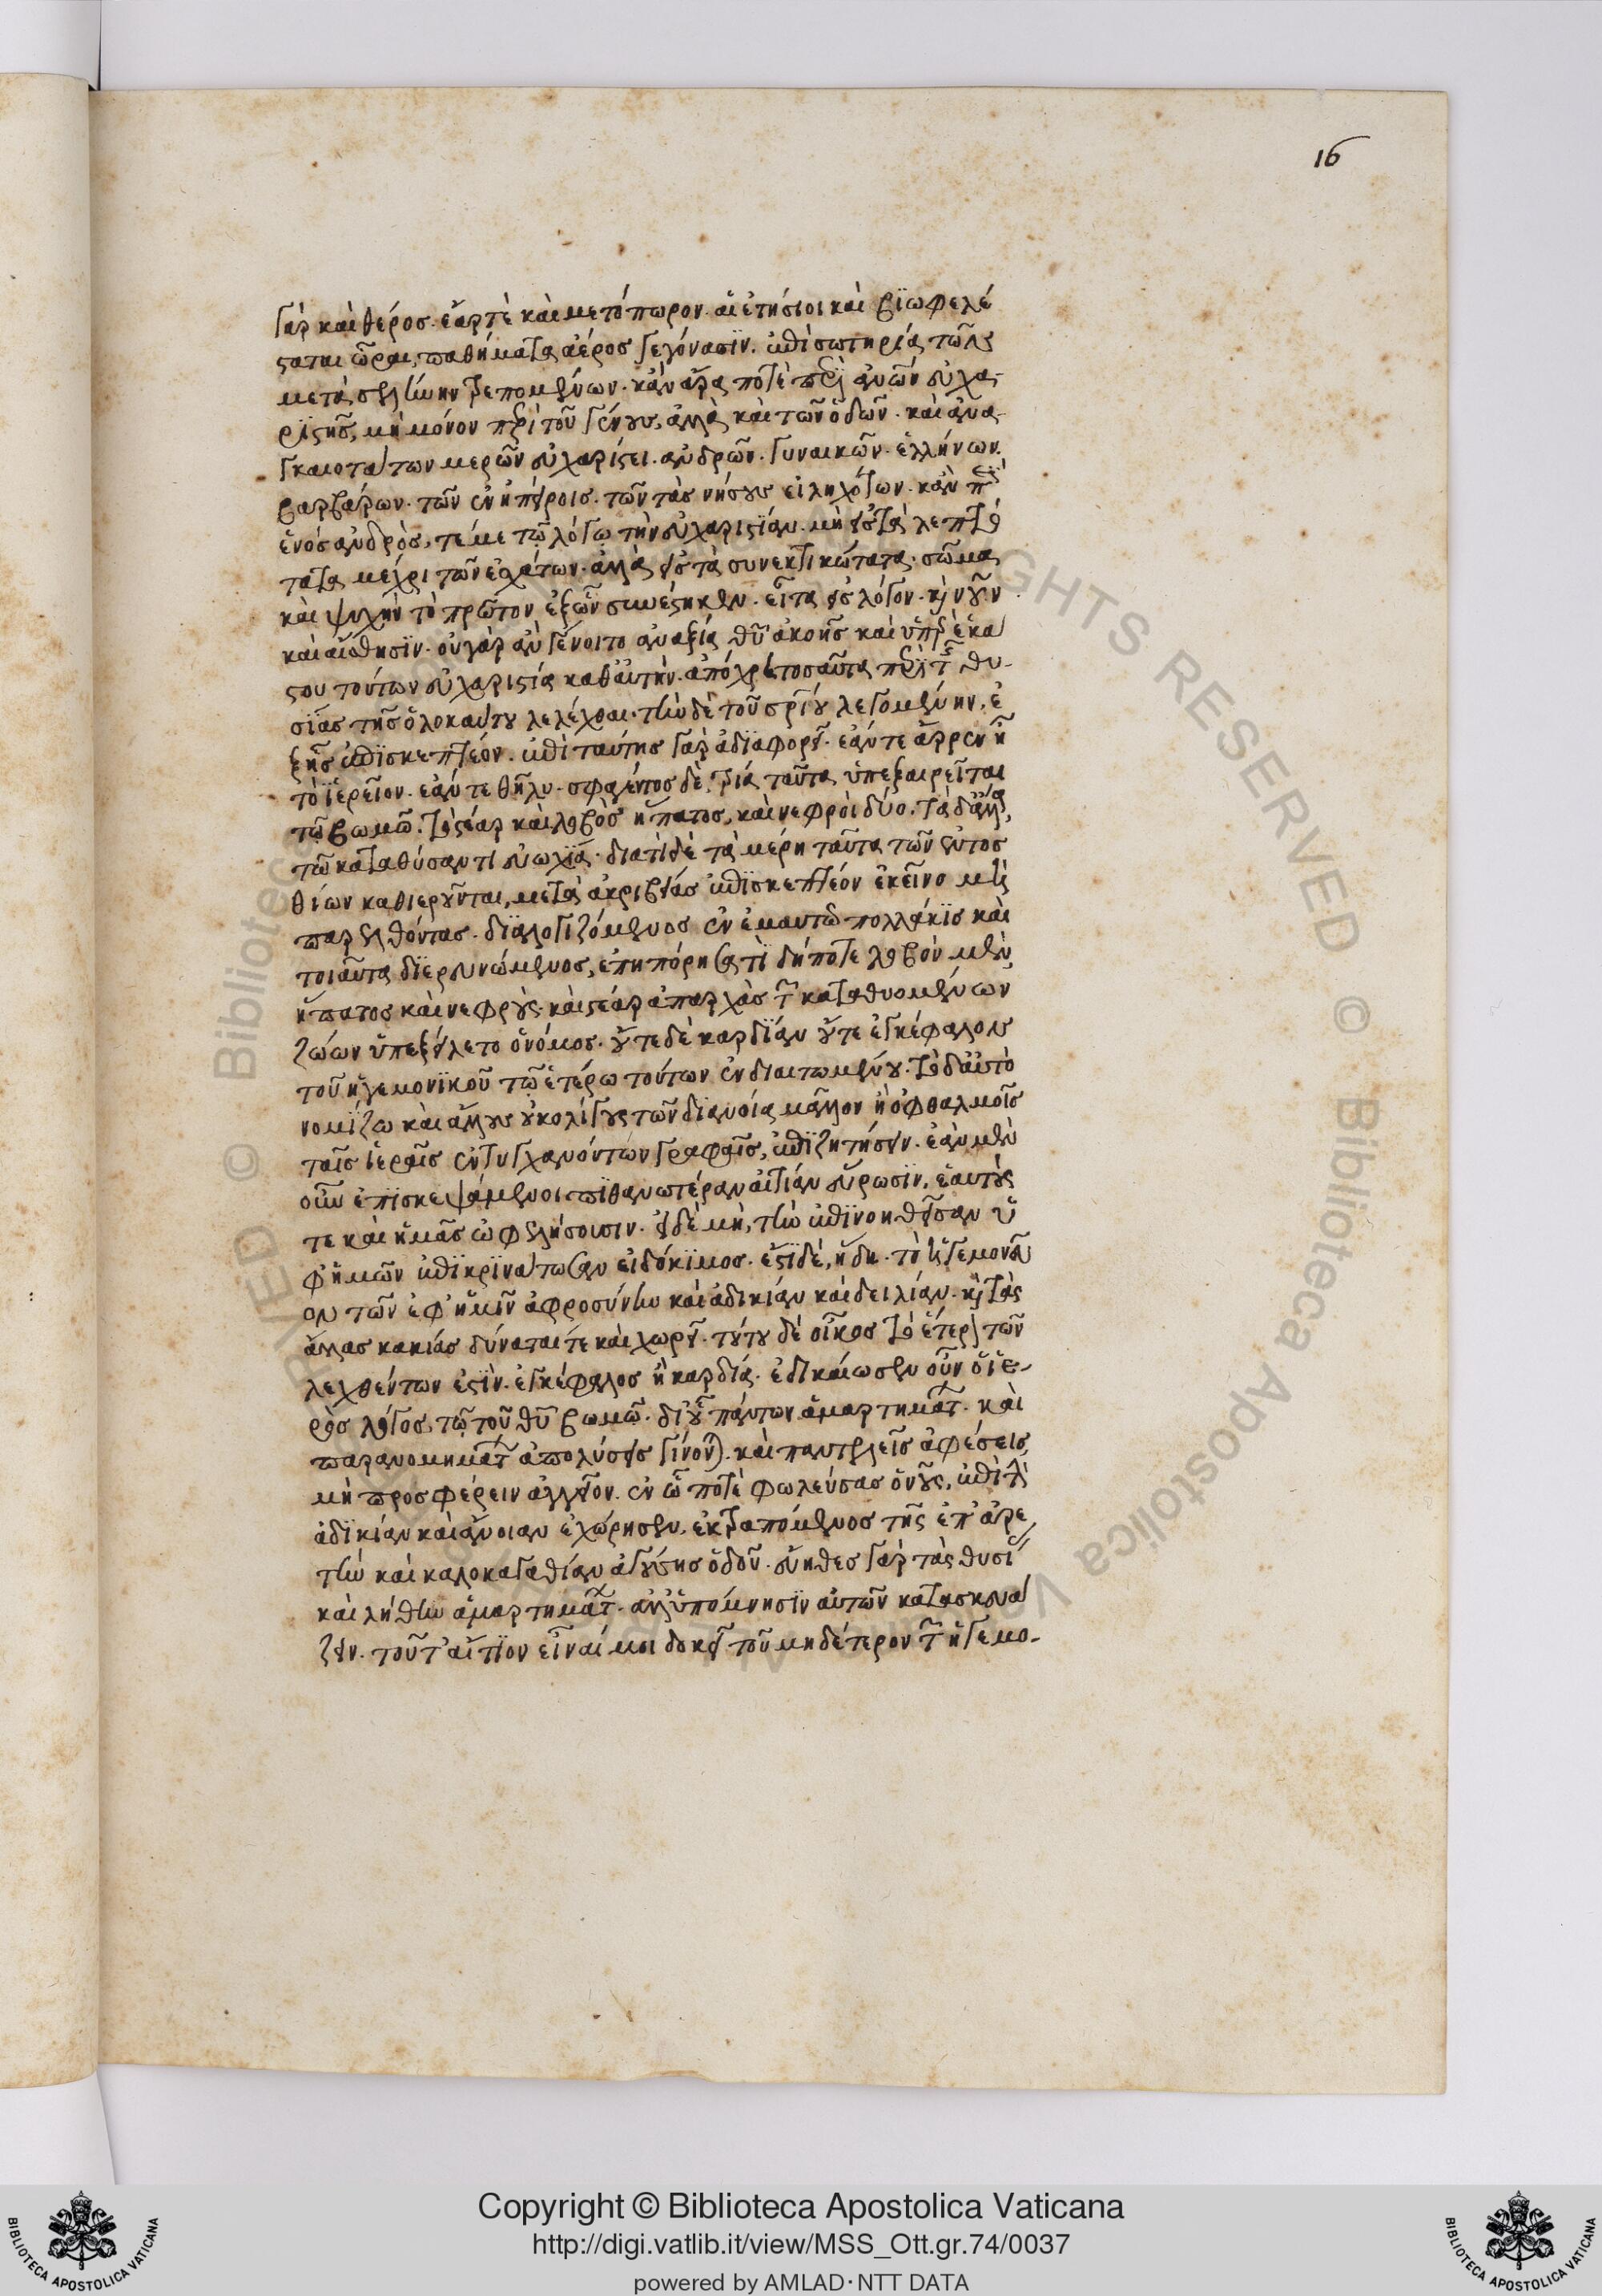 16
γὰρ καὶ θέρος. ἔαρ τὲ καὶ μετόπωρον. αἱ ἐτήσιοι καὶ βιωφελέ
σται ὧραι, παθήματα ἀέρος γεγόνασιν. ἐπὶ σωτηρία τῶν
μετὰ σελήνην τρεπομένων. κἂν ἄρα ποτὲ περὶ ἀνων εὐχα-
ριστῆς, μὴ μόνον περὶ τοῦ γένους, ἀλλὰ καὶ τῶν ὁδῶν. καὶ ἀνα-
γκαιοτάτων μερῶν εὐχαρίστει. ἀνδρῶν. γυναικῶν. ἑλλήνων.
βαρβάρων. τῶν ἐν ἠπείροις. τῶν τὰς νήσους εἰληχότων. κἂν περὶ
ἑνὸς ἀνδρὸς, τέμε τῷ λόγῳ τὴν εὐχαριστίαν. μὴ εἰς τὰ λεπτό
τατα μέχρι τῶν ἐσχάτων. ἀλλὰ εἰς τὰ συνεκτικώτατα. σῶμα
καὶ ψυχὴν τὸ πρῶτον ἐξ ὧν συνέστηκεν. εἶτα εἰς λόγον. καὶ νοῦν
καὶ αἴσθησιν. οὐ γὰρ ἂν γένοιτο ἀναξία θυ ἀκοῆς καὶ ὑπὲρ ἑκά
στου τούτων εὐχαριστία καθ' αὑτὴν. ἀπόχρη τοσαῦτα περὶ τῆς θυ-
σίας τῆς ὁλοκαύτου λελέχθαι. τὴν δὲ τοῦ σρίου λεγομένην, ἑ
ξῆς ἐπισκεπτέον. ἐπὶ ταύτης γὰρ ἀδιαφορεῖ. ἐάν τε ἄρρεν ᾖ
τὸ ἱερεῖον. ἐάν τε θῆλυ. σφαγέντος δὲ, τρία ταῦτα ὑπεξαιρεῖται
τῷ βωμῷ. τὸ στέαρ καὶ λοβὸς ἥπατος, καὶ νεφροὶ δύο. τὰ δ' ἄλλα,
τῷ καταθύσαντι εὐωχία. διατί δὲ τὰ μέρη ταῦτα τῶν ἐντος
θίων καθιεροῦνται, μετὰ ἀκριβείας ἐπισκεπτέον ἐκεῖνο μὴ
παρελθόντας. διαλογιζόμενος ἐν ἐμαυτῶ πολλάκις καὶ
τοιαῦτα διερευνώμενος, ἐπηπόρησα τί δήποτε λοβὸν μὲν
ἥπατος καὶ νεφροὺς. καὶ στέαρ ἀπαρχὰς τῶν καταθυομένων
ζώων ὑπεξείλετο ὁ νόμος. οὔτε δὲ καρδίαν οὔτε ἐγκέφαλον
τοῦ ἡγεμονικοῦ τῷ ἑτέρω τούτων ἐνδιαιτωμένου. τὸ δ' αὐτὸ
νομίζω καὶ ἄλλους οὐκ ολίγους τῶν διανοία μᾶλλον ἢ ὀφθαλμοῖς
ταῖς ἱεραῖς ἐντυγχανόντων γραφαῖς, ἐπιζητήσειν. ἐὰν μὲν
οὖν ἐπισκεψάμενοι πιθανωτέραν αἰτίαν εὕρωσιν, ἑαυτούς
τε καὶ ἡμᾶς ὠφελήσουσιν. εἰ δὲ μὴ, τὴν ἐπινοηθεῖσαν ὑ
φ' ἡμῶν ἐπικρινάτωσαν εἰ δόκιμος. ἔστι δὲ, ἥδη. τὸ ἡγεμονεῦ
ον τῶν ἐφ' ἡμῖν ἀφροσύνην καὶ ἀδικίαν καὶ δειλίαν. καὶ τὰς
ἄλλας κακίας δύναταί τε καὶ χωρεῖ. τούτου δὲ οἶκος τὸ ἕτερον τῶν
λεχθέντων ἐστὶν. ἐγκέφαλος ἢ καρδία. ἐδικαίωσεν οὖν ὁ ἱε-
ρὸς λόγος, τῷ τοῦ θυ βωμῷ. δι' οὗ πάντων ἁμαρτημάτων. καὶ
παρανομημάτων ἀπολύσεις γίνονται. καὶ παντελεῖς ἀφέσεις,
μὴ προσφέρειν ἀγγεῖον. ἐν ᾧ ποτὲ φωλεύσας ὁ νοῦς, ἐπὶ τὴν
ἀδικίαν καὶ ἄνοιαν ἐχώρησεν, ἐκτραπόμενος τῆς ἐπ' ἀρε
τὴν καὶ καλοκαγαθίαν ἀγούσης ὁδοῦ. εὔηθες γὰρ τὰς θυσίας
καὶ λήθην ἁμαρτημάτων. ἀλλ' ὑπόμνησιν αὐτῶν κατασκευά
ζειν. τοῦτ' αἴτιον εἶναί μοι δοκεῖ τοῦ μηδέτερον τῶν ἡγεμο-
© Biblioteca Apostolica Vaticana
ALL RIGHTS RESERVED
Copyright © Biblioteca Apostolica Vaticana
http://digi.vatlib.it/view/MSS_Ott.gr.74/0037
powered by AMLAD·NTT DATA
BIBLIOTECA APOSTOLICA VATICANA
BIBLIOTECA APOSTOLICA VATICANA